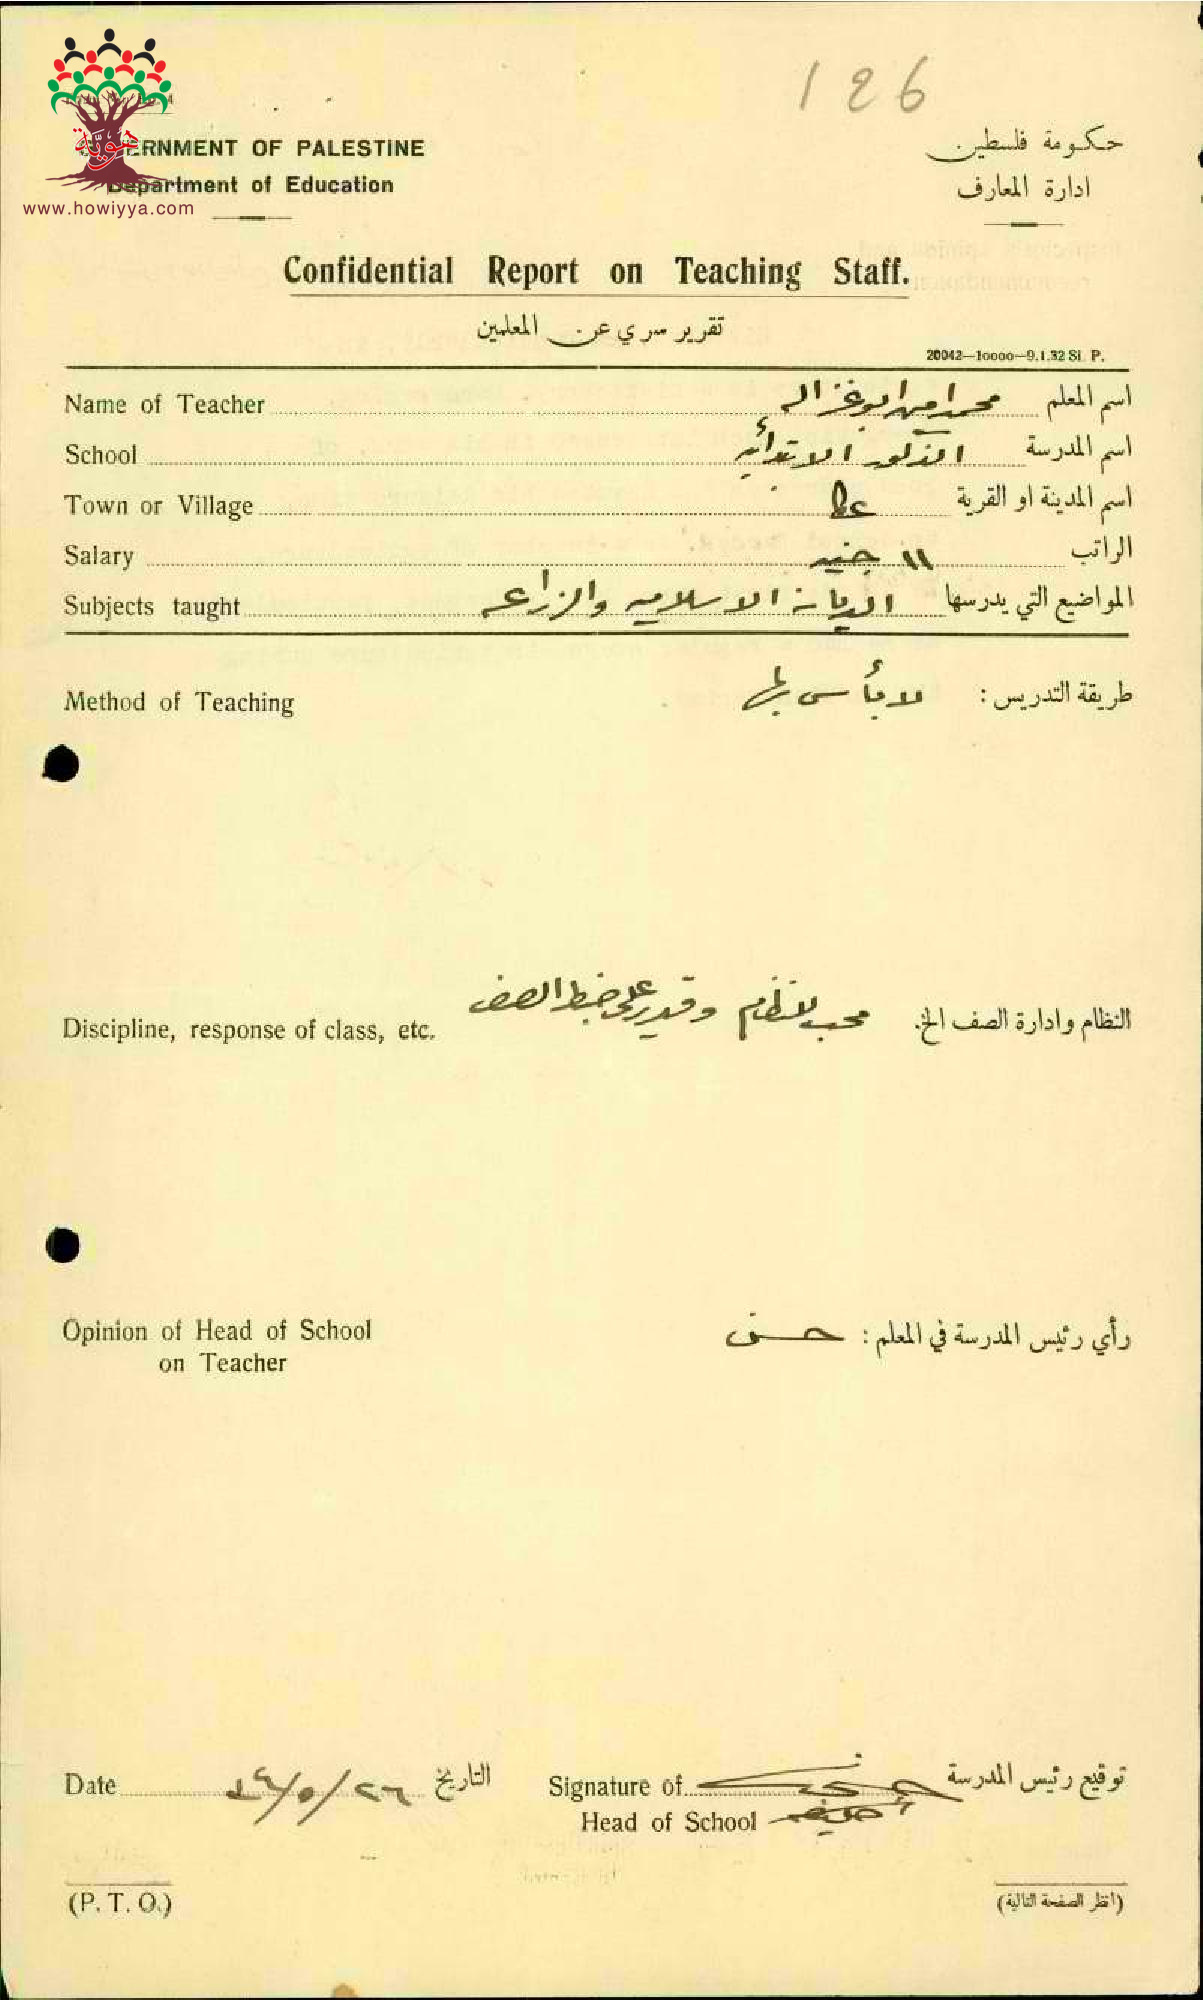 126
هويّة
www.howiyya.com
ERNMENT OF PALESTINE
Department of Education
حكومة فلسطين
ادارة المعارف
Confidential Report on Teaching Staff.
تقرير سري عن المعلمين
20042—10000—9.1.32 SI. P.
Name of Teacher محمد امين ابو غزاله اسم المعلم
School الذكور الابتدائيه اسم المدرسة
Town or Village عكا اسم المدينة او القرية
Salary ١١ جنيه الراتب
Subjects taught الديانة الاسلاميه والزراعه المواضيع التي يدرسها
Method of Teaching لا بأس بها طريقة التدريس :
Discipline, response of class, etc. محب للنظام وقدير على ضبط الصف النظام وادارة الصف الخ.
Opinion of Head of School رأي رئيس المدرسة في المعلم : حسن
on Teacher
Date التاريخ Signature of توقيع رئيس المدرسة
Head of School
(P. T. O.) (انظر الصفحة التالية)